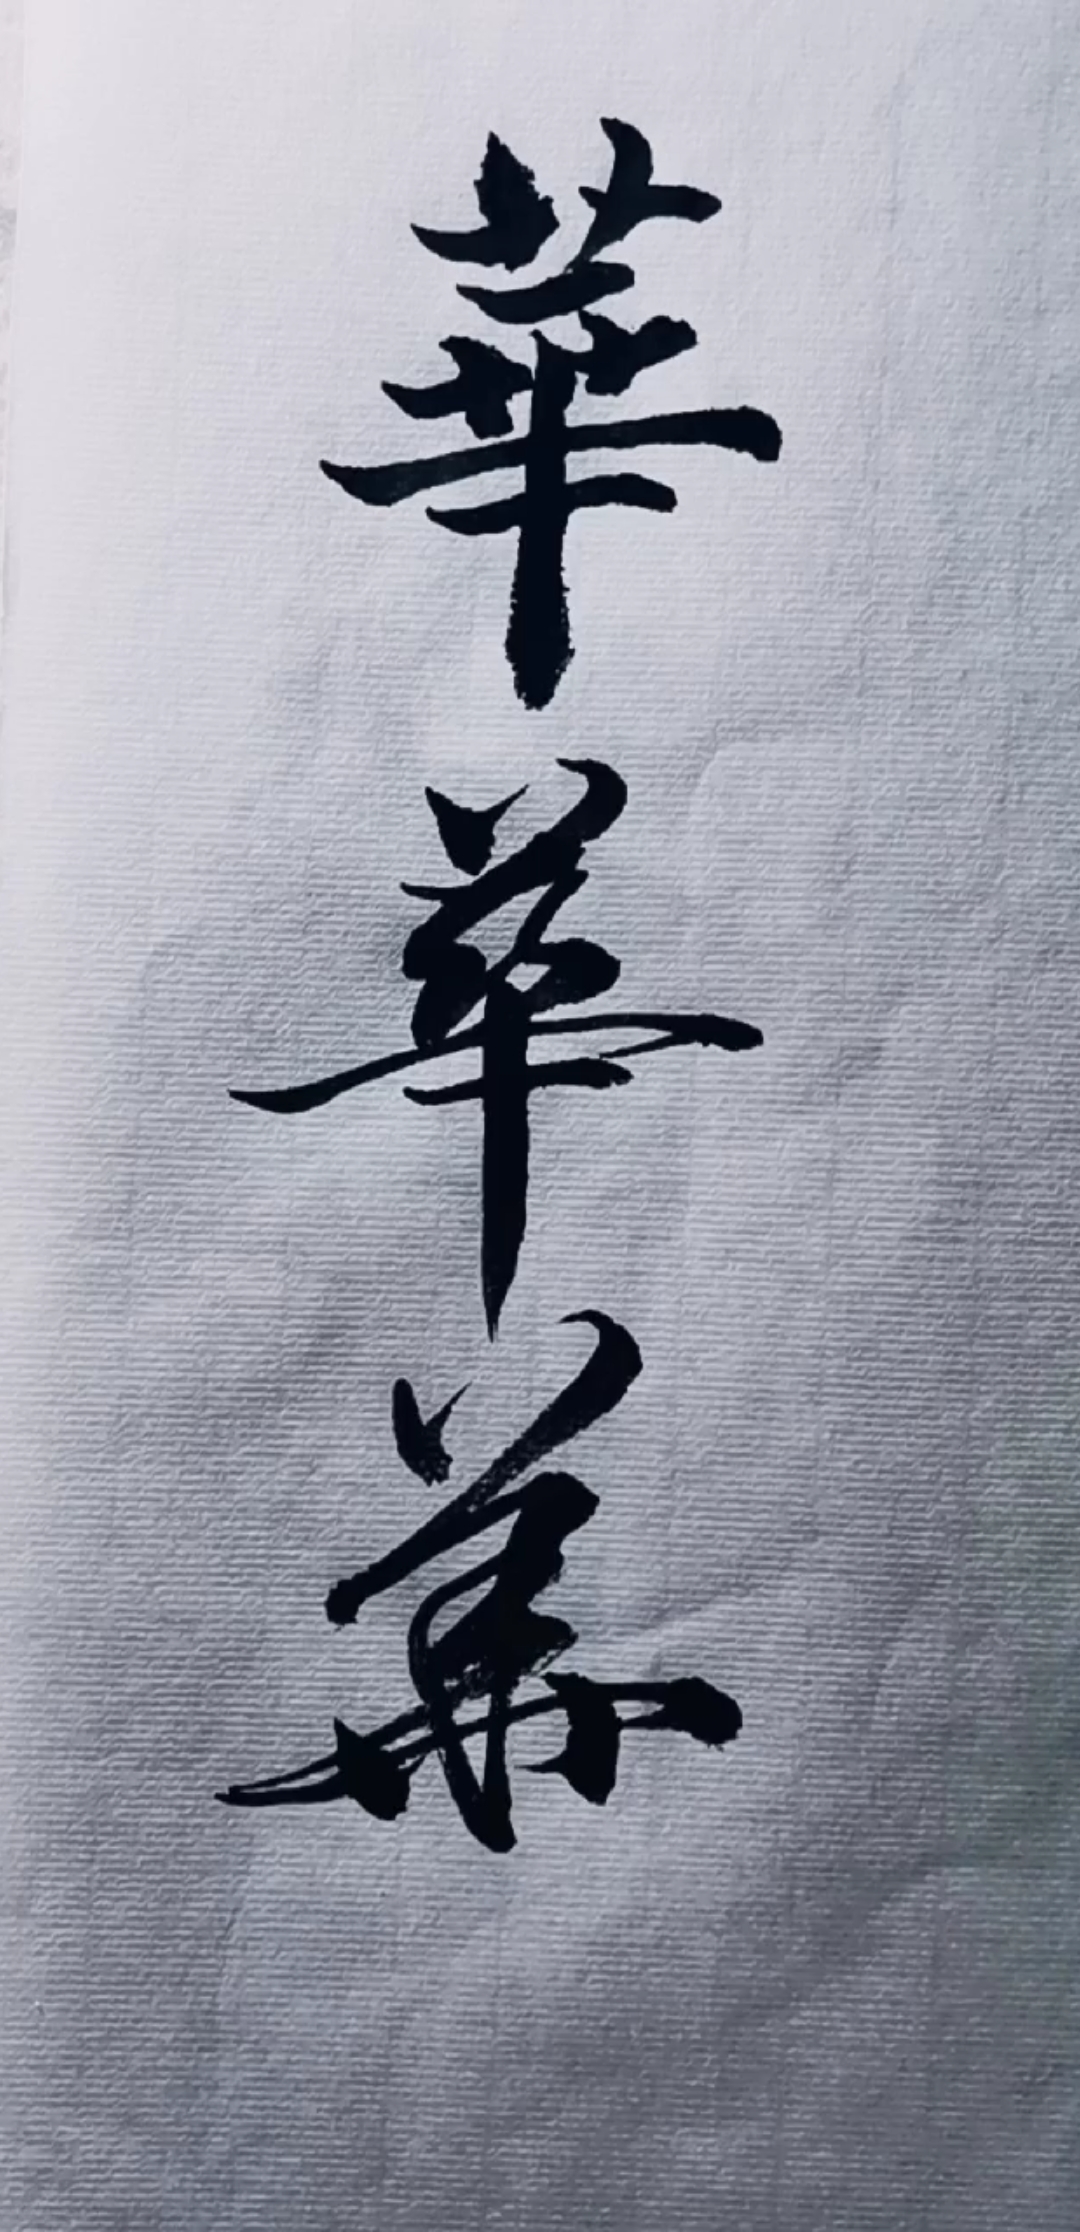 華華華